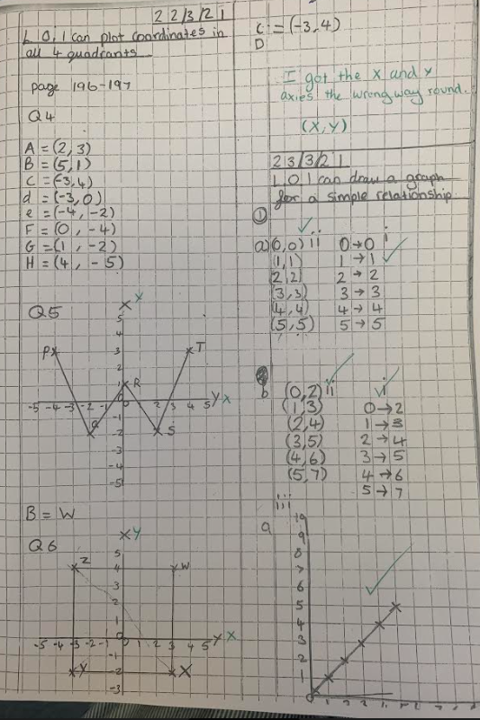 22/3/21
L.O, I can plot coordinates in
all 4 quadrants
page 196-197
Q4
A = (2, 3)
B = (5, 1)
C = (-3, 4)
d = (-3, 0)
e = (-4, -2)
F = (0, -4)
G = (1, -2)
H = (4, -5)
Q5
X Y
5
4
P 3 T
2
1 R
-5 -4 -3 -2 -1 0 1 2 3 4 5 Y X
-1
Q -2 S
-3
-4
-5
B = W
Q6
X Y
5
Z 4 W
3
2
1
-5 -4 -3 -2 -1 0 1 2 3 4 5 Y X
-1
Y -2 X
-3
C = (-3, 4)
D
I got the X and Y
axies the wrong way round.
(X, Y)
23/3/21
L.O, I can draw a graph
for a simple relationship
①
a) (0,0) ii 0→0 i
(1,1) 1→1
(2,2) 2→2
(3,3) 3→3
(4,4) 4→4
(5,5) 5→5
b (0,2) ii i
(1,3) 0→2
(2,4) 1→3
(3,5) 2→4
(4,6) 3→5
(5,7) 4→6
5→7
iii
a 10
9
8
7
6
5
4
3
2
1